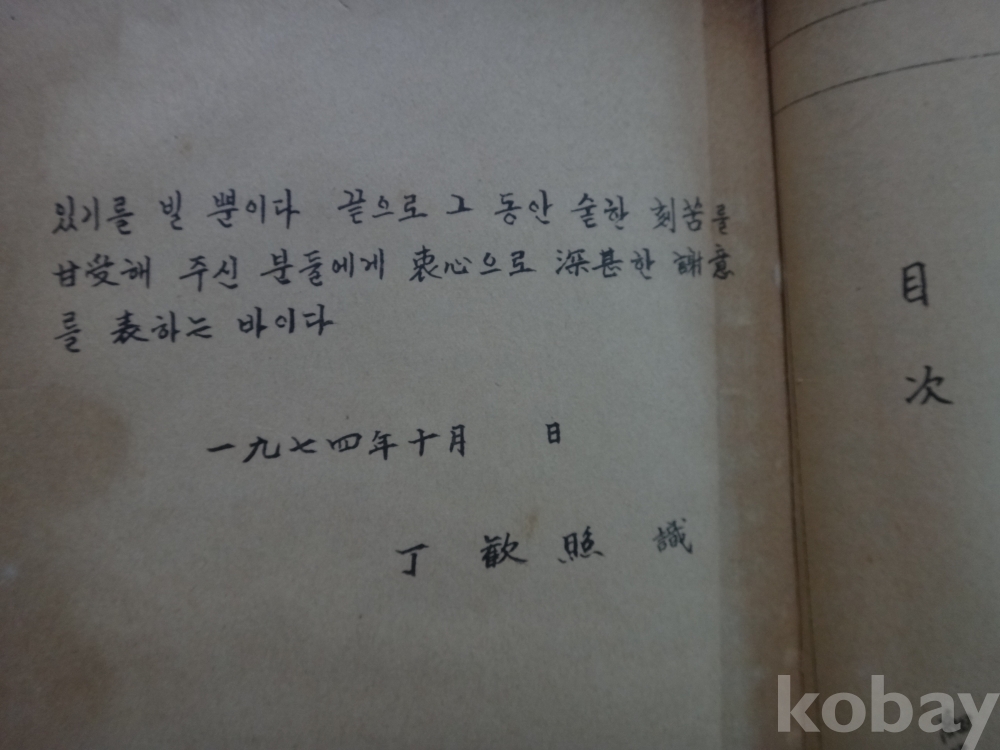 있기를 빌 뿐이다 끝으로 그 동안 숱한 刻苦를
甘受해 주신 분들에게 衷心으로 深甚한 謝意
를 表하는 바이다
一九七四年十月 日
丁 歡 照 識
目
次
kobay